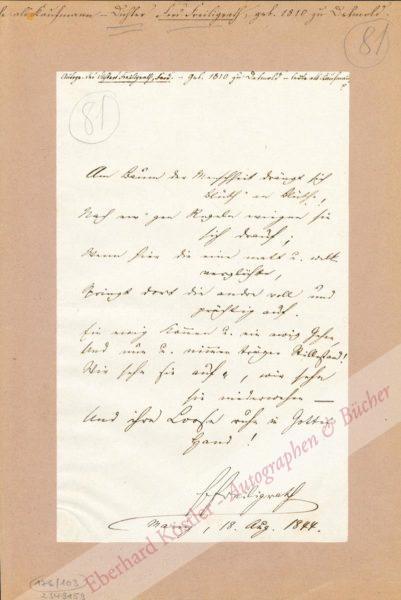 als Kaufmann – Dichter Ferd. Freiligrath, geb. 1810 zu Detmold.
81
Autogr. des Dichters Freiligrath, Ferd. – geb. 1810 zu Detmold – lebte als Kaufmann
81
Am Baum der Menschheit drängt sich
Blüth' an Blüthe,
Nach ew'gen Regeln wiegen sie
sich drauf;
Wenn hier die eine matt u. welk
verglühte,
Springt dort die andre voll und
prächtig auf.
Ein ewig Kommen u. ein ewig Gehn,
Und nun u. nimmer träger Stillestand!
Wir sehn sie auf-, wir sehn
sie niederwehn —
Und ihre Loose ruhn in Gottes
Hand!
FFreiligrath
18. Aug. 1844.
Eberhard Köstler - Autographen & Bücher
176/103
2349159